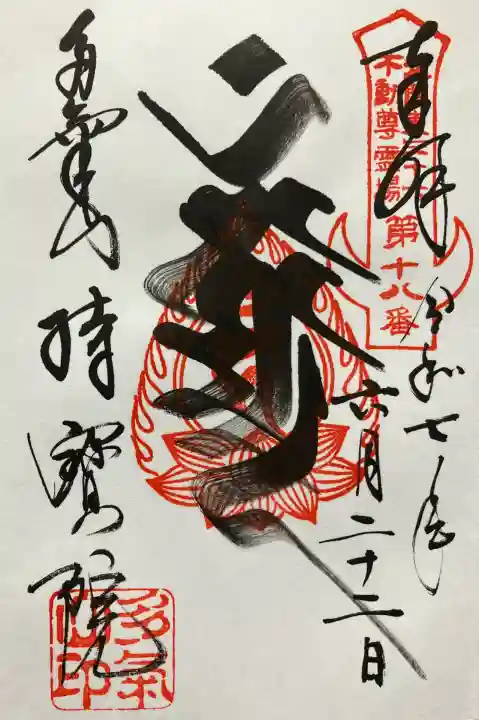 奉拝
不動尊霊場第十八番
令和七年
六月二十二日
多氣山
持寶院
多氣山印